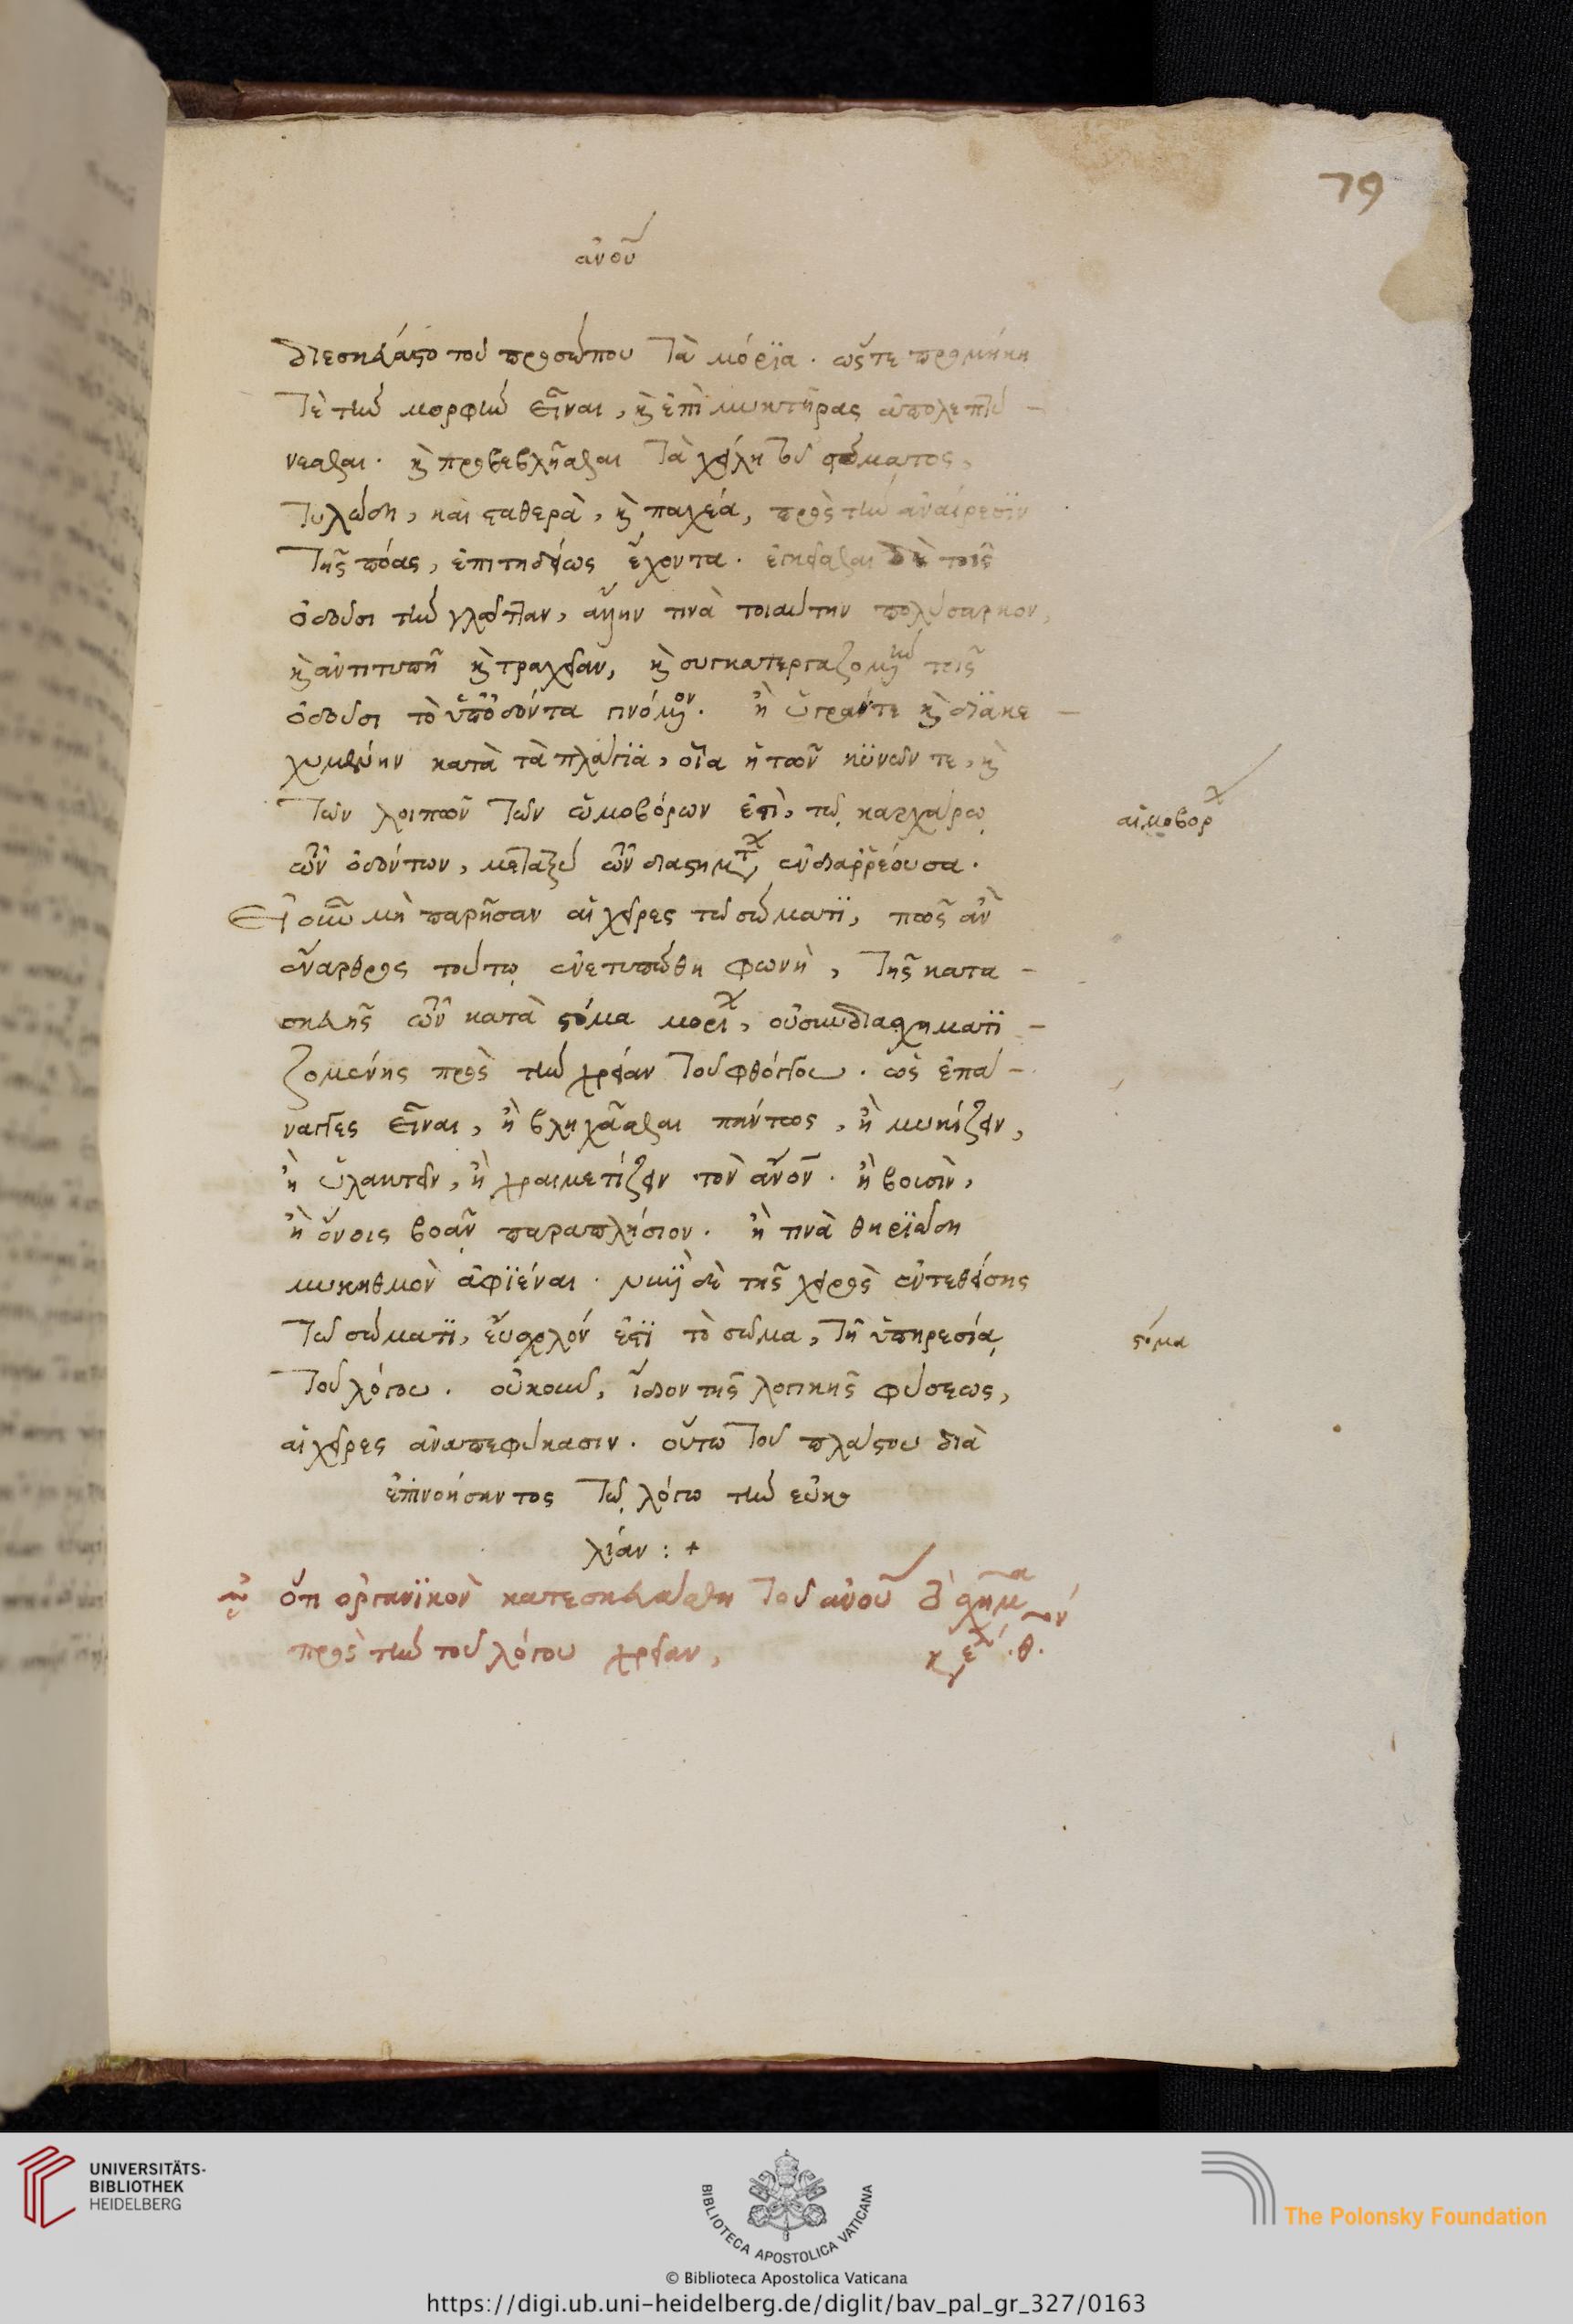 79
ἀνοῦ
διεσκεύαστο τοῦ προσώπου τὰ μόρϊα · ὥστε προμήκη
τὲ τὴν μορφὴν εἶναι, καὶ ἐπὶ μυκτῆρας ἀπολεπτύ –
νεσθαι · καὶ προβεβλῆσθαι τὰ χείλη τοῦ σώματος,
τυλώδη, καὶ σταθερὰ, καὶ παχεία, πρὸς τὴν ἀναίρεσϊν
τῆς πόας, ἐπιτηδείως ἔχοντα · ἐγκεῖσθαι δὲ τοῖς
ὀδοῦσι τὴν γλῶτταν, ἄλλην τινὰ τοιαύτην πολύσαρκον,
καὶ ἀντιτυπῆ καὶ τραχεῖαν, καὶ συγκατεργαζομένην τοῖς
ὀδοῦσι τὸ ὑπ' ὀδόντα γινόμενον · ἢ ὑγράν τε καὶ διακε –
χυμένην κατὰ τὰ πλάγϊα, οἵα ἡ τῶν κϋνῶν τε, καὶ
τῶν λοιπῶν τῶν ὠμοβόρων ἐστὶ, τῷ καρχάρῳ
τῶν ὀδόντων, μεταξὺ τῶν διαστημάτων ἐνδιαῤῥέουσα ·
Εἰ οὖν μὴ παρῆσαν αἱ χεῖρες τῷ σώματϊ, πῶς ἂν
ἔναρθρος τούτῳ ἐνετυπώθη φωνὴ, τῆς κατα –
σκευῆς τῶν κατὰ στόμα μορίων, οὐ συνδιασχηματϊ –
ζομένης πρὸς τὴν χρείαν τοῦ φθόγγου · ὡς ἐπά –
ναγκες εἶναι, ἢ βληχᾶσθαι πάντως, ἢ μυκίζειν,
ἢ ὑλακτεῖν, ἢ χραιμετίζειν τὸν ἄνον · ἢ βουσὶν,
ἢ ὄνοις βοᾶν παραπλήσιον · ἤ τινὰ θηρϊώδη
μυκηθμὸν ἀφϊέναι · νυνὶ δὲ τῆς χειρὸς ἐντεθείσης
τῷ σώματϊ, εὔσχολόν ἐστϊ τὸ σῶμα, τῇ ὑπηρεσίᾳ
τοῦ λόγου · οὐκοῦν, ἴδιον τῆς λογικῆς φύσεως,
αἱ χεῖρες ἀναπεφύκασιν · οὕτω τοῦ πλάστου διὰ
ἐπινοήσαντος τῷ λόγῳ τὴν εὐκο
λίαν : +
αἱμοβόρων
στόμα
ὅτι ὀργανϊκὸν κατεσκευάσθη τοῦ ἀνοῦ τὸ σχῆμα
πρὸς τὴν τοῦ λόγου χρείαν, κεφάλαιον · θ ·
UNIVERSITÄTS-
BIBLIOTHEK
HEIDELBERG
BIBLIOTECA APOSTOLICA VATICANA
The Polonsky Foundation
© Biblioteca Apostolica Vaticana
https://digi.ub.uni-heidelberg.de/diglit/bav_pal_gr_327/0163